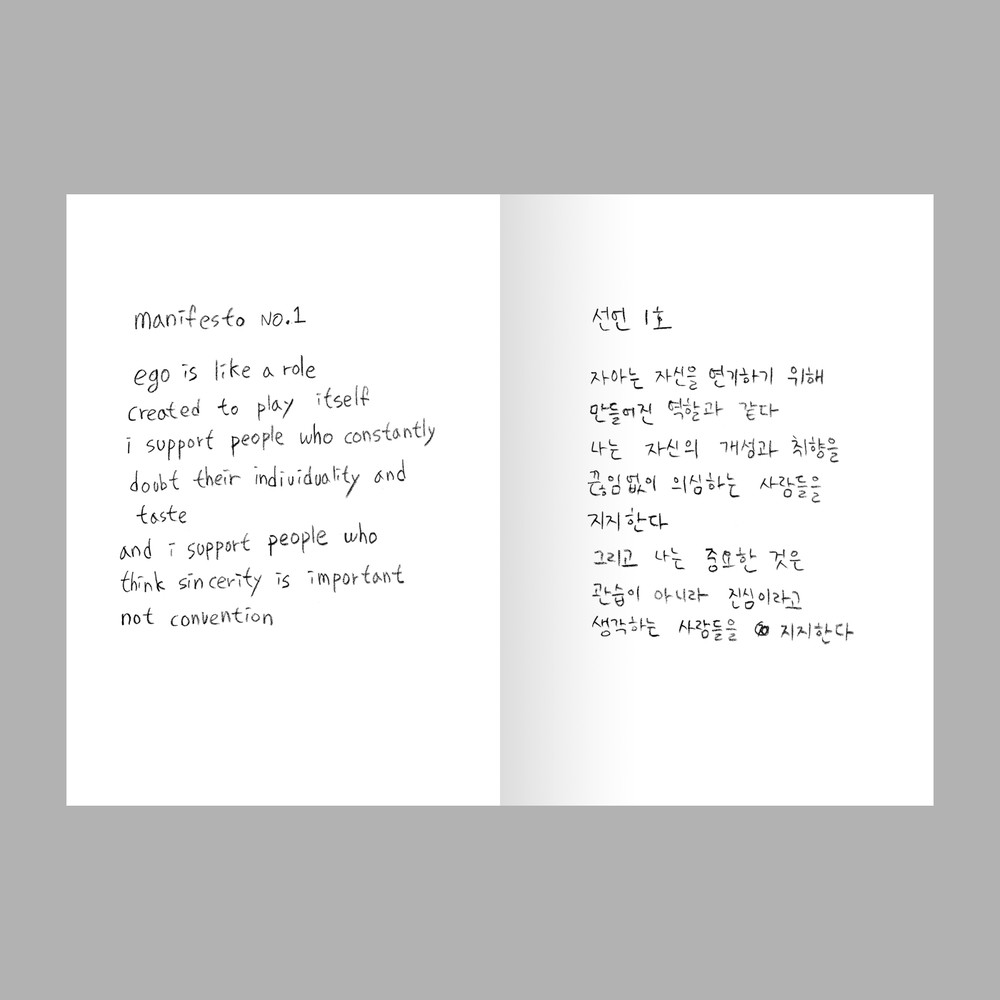 manifesto NO.1
ego is like a role
created to play itself
i support people who constantly
doubt their individuality and
taste
and i support people who
think sincerity is important
not convention
선언 1호
자아는 자신을 연기하기 위해
만들어진 역할과 같다
나는 자신의 개성과 취향을
끊임없이 의심하는 사람들을
지지한다
그리고 나는 중요한 것은
관습이 아니라 진심이라고
생각하는 사람들을 지지한다